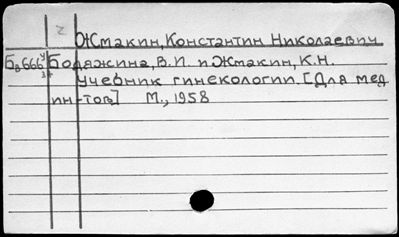 Жмакин, Константин Николаевич
Бодяжина, В.П. и Жмакин, К.Н.
Учебник гинекологии. [Для мед
ин-тов] М., 1958